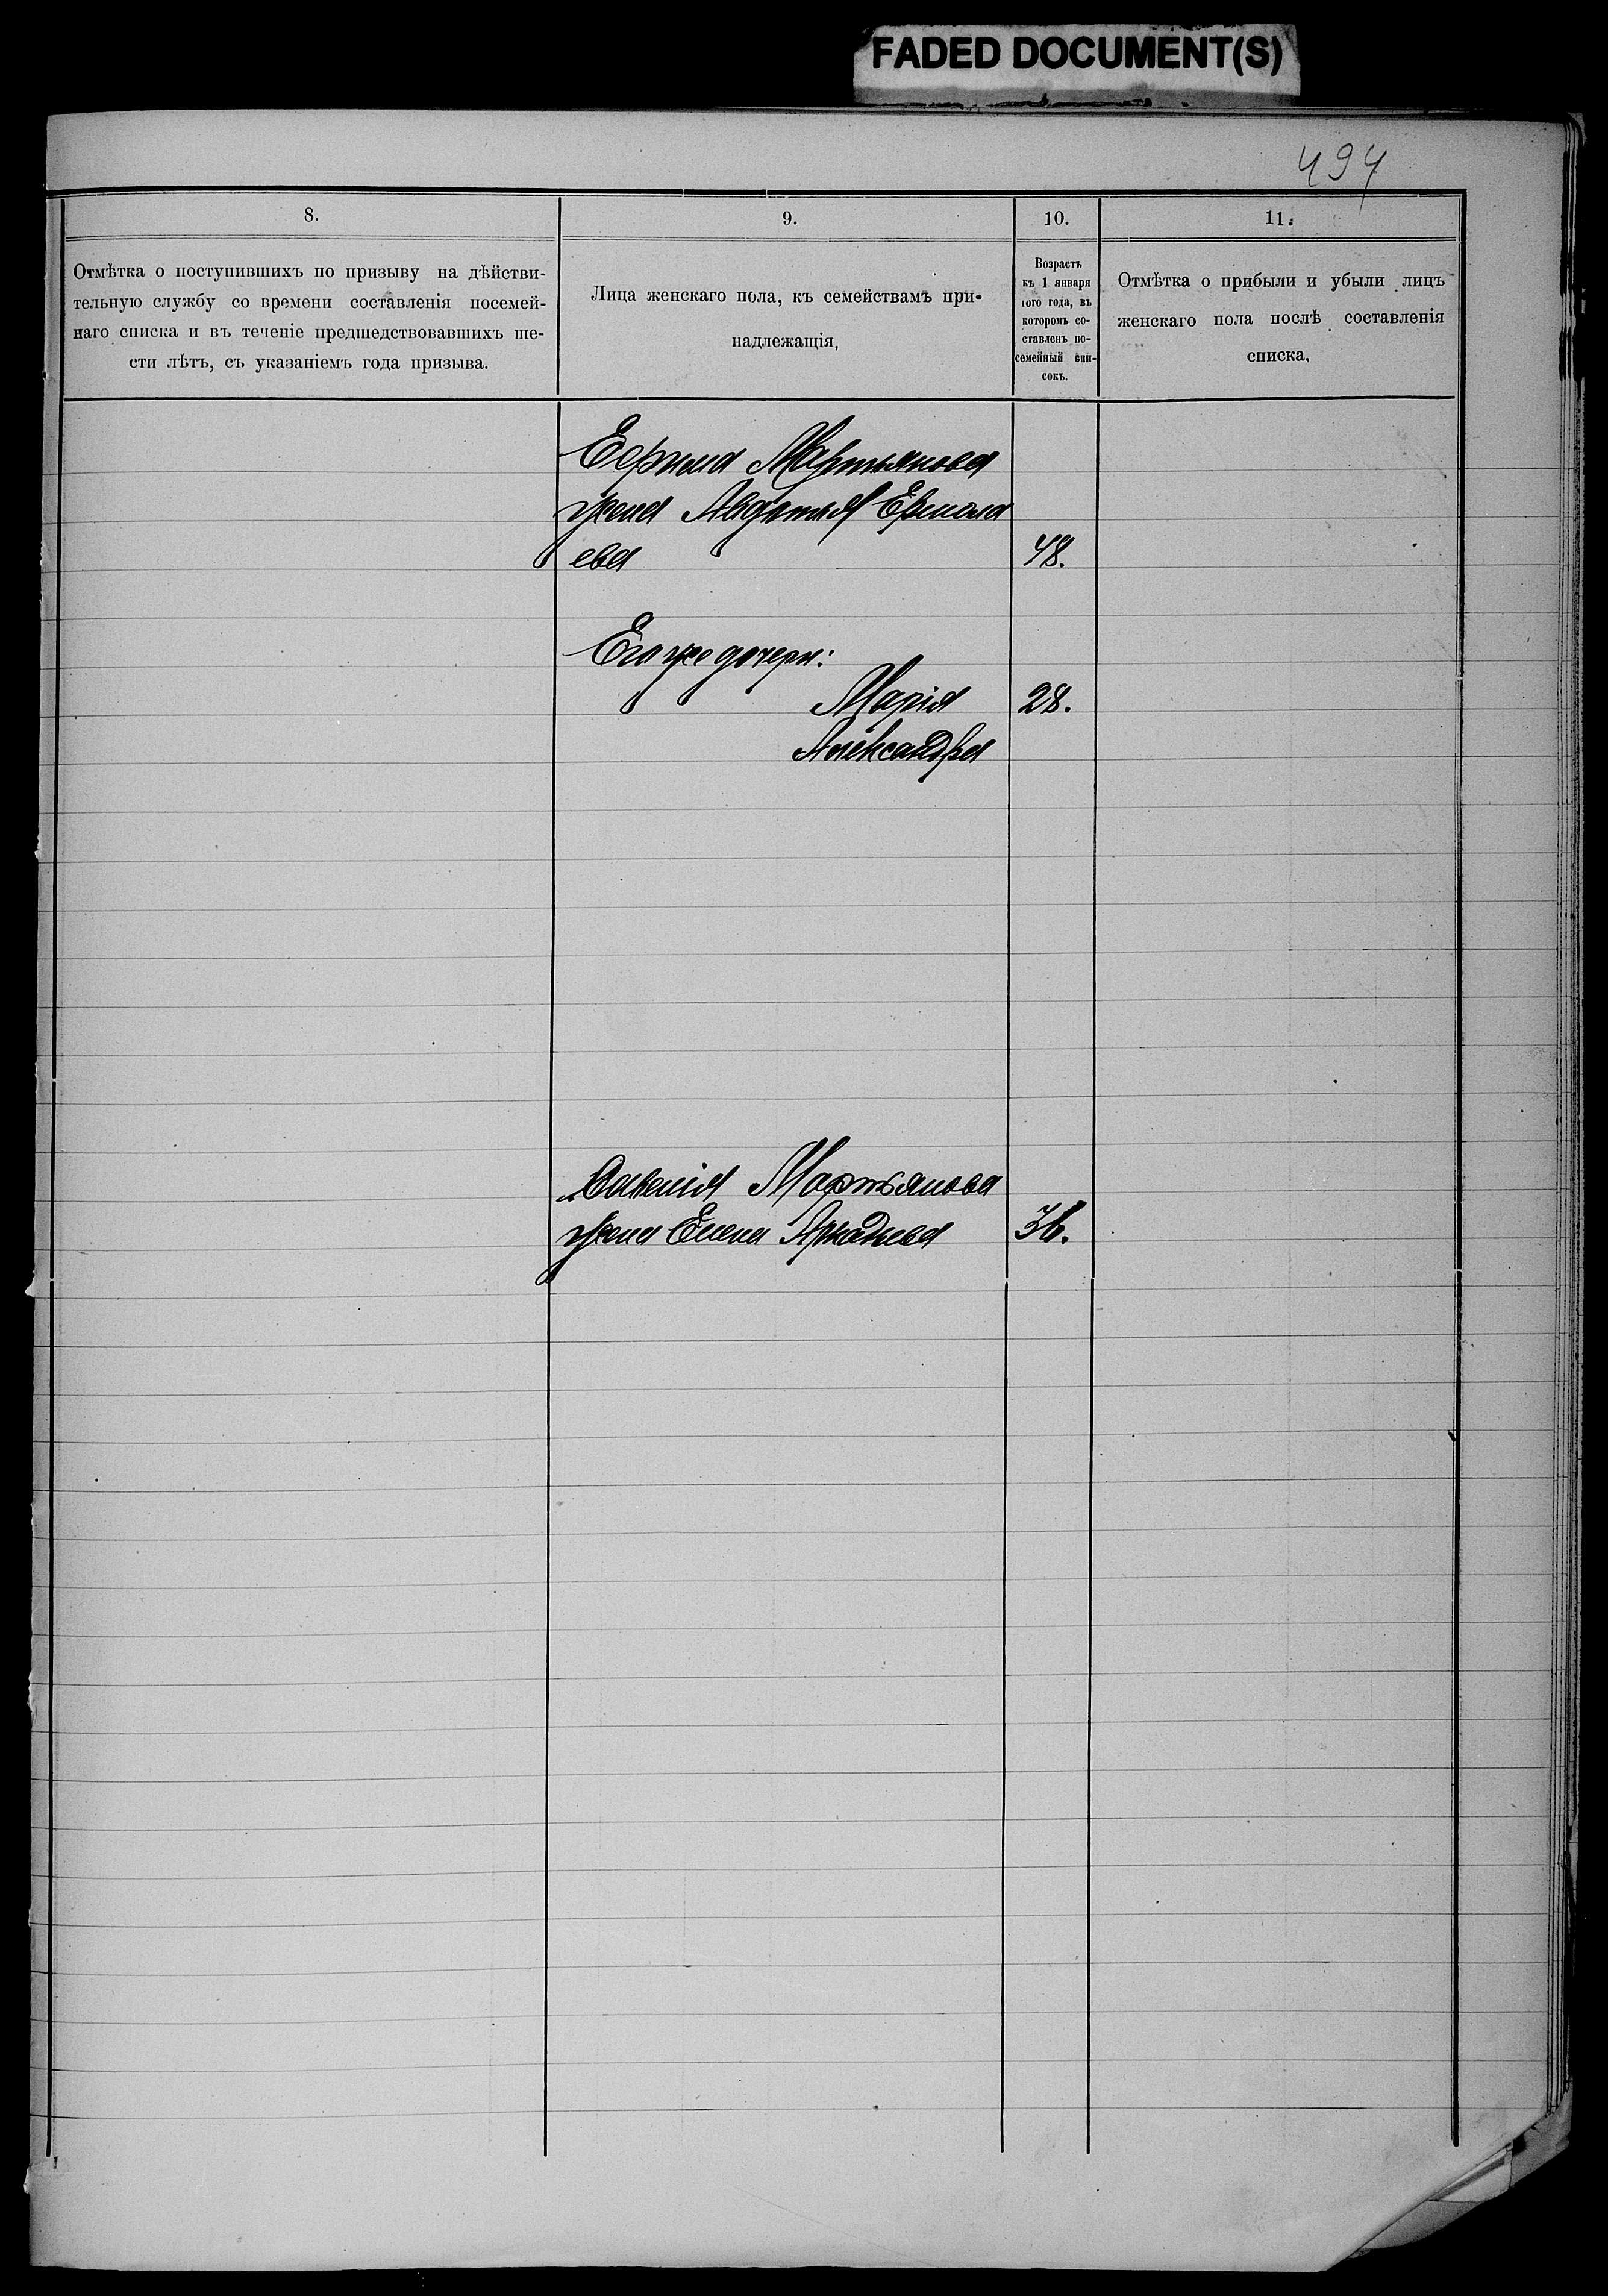 FADED DOCUMENT(S)
494
8.
9.
10.
11.
Отмѣтка о поступившихъ по призыву на дѣйстви-
тельную службу со времени составленія посемей-
наго списка и въ теченіе предшедствовавшихъ ше-
сти лѣтъ, съ указаніемъ года призыва.
Лица женскаго пола, къ семействамъ при-
надлежащія,
Возрастъ
къ 1 января
того года, въ
которомъ со-
ставленъ по-
семейный спи-
сокъ.
Отмѣтка о прибыли и убыли лицъ
женскаго пола послѣ составленія
списка.
Ефрема Мартьянова
жена Авдотья Ермола
ева 48.
Его же дочери:
Марія 28.
Александра
Савелія Мартьянова
жена Елена Аркадьева 36.